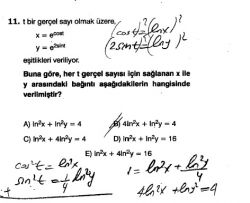 11. t bir gerçel sayı olmak üzere,
x = e^cost
y = e^2sint
eşitlikleri veriliyor.
(cost)² = (lnx)²
(2sint)² = (lny)²
Buna göre, her t gerçel sayısı için sağlanan x ile
y arasındaki bağıntı aşağıdakilerin hangisinde
verilmiştir?
A) ln²x + ln²y = 4
B) 4ln²x + ln²y = 4
C) ln²x + 4ln²y = 4
D) ln²x + ln²y = 16
E) ln²x + 4ln²y = 16
cos²t = ln²x
sin²t = 1/4 ln²y
+
1 = ln²x + ln²y/4
4ln²x + ln²y = 4